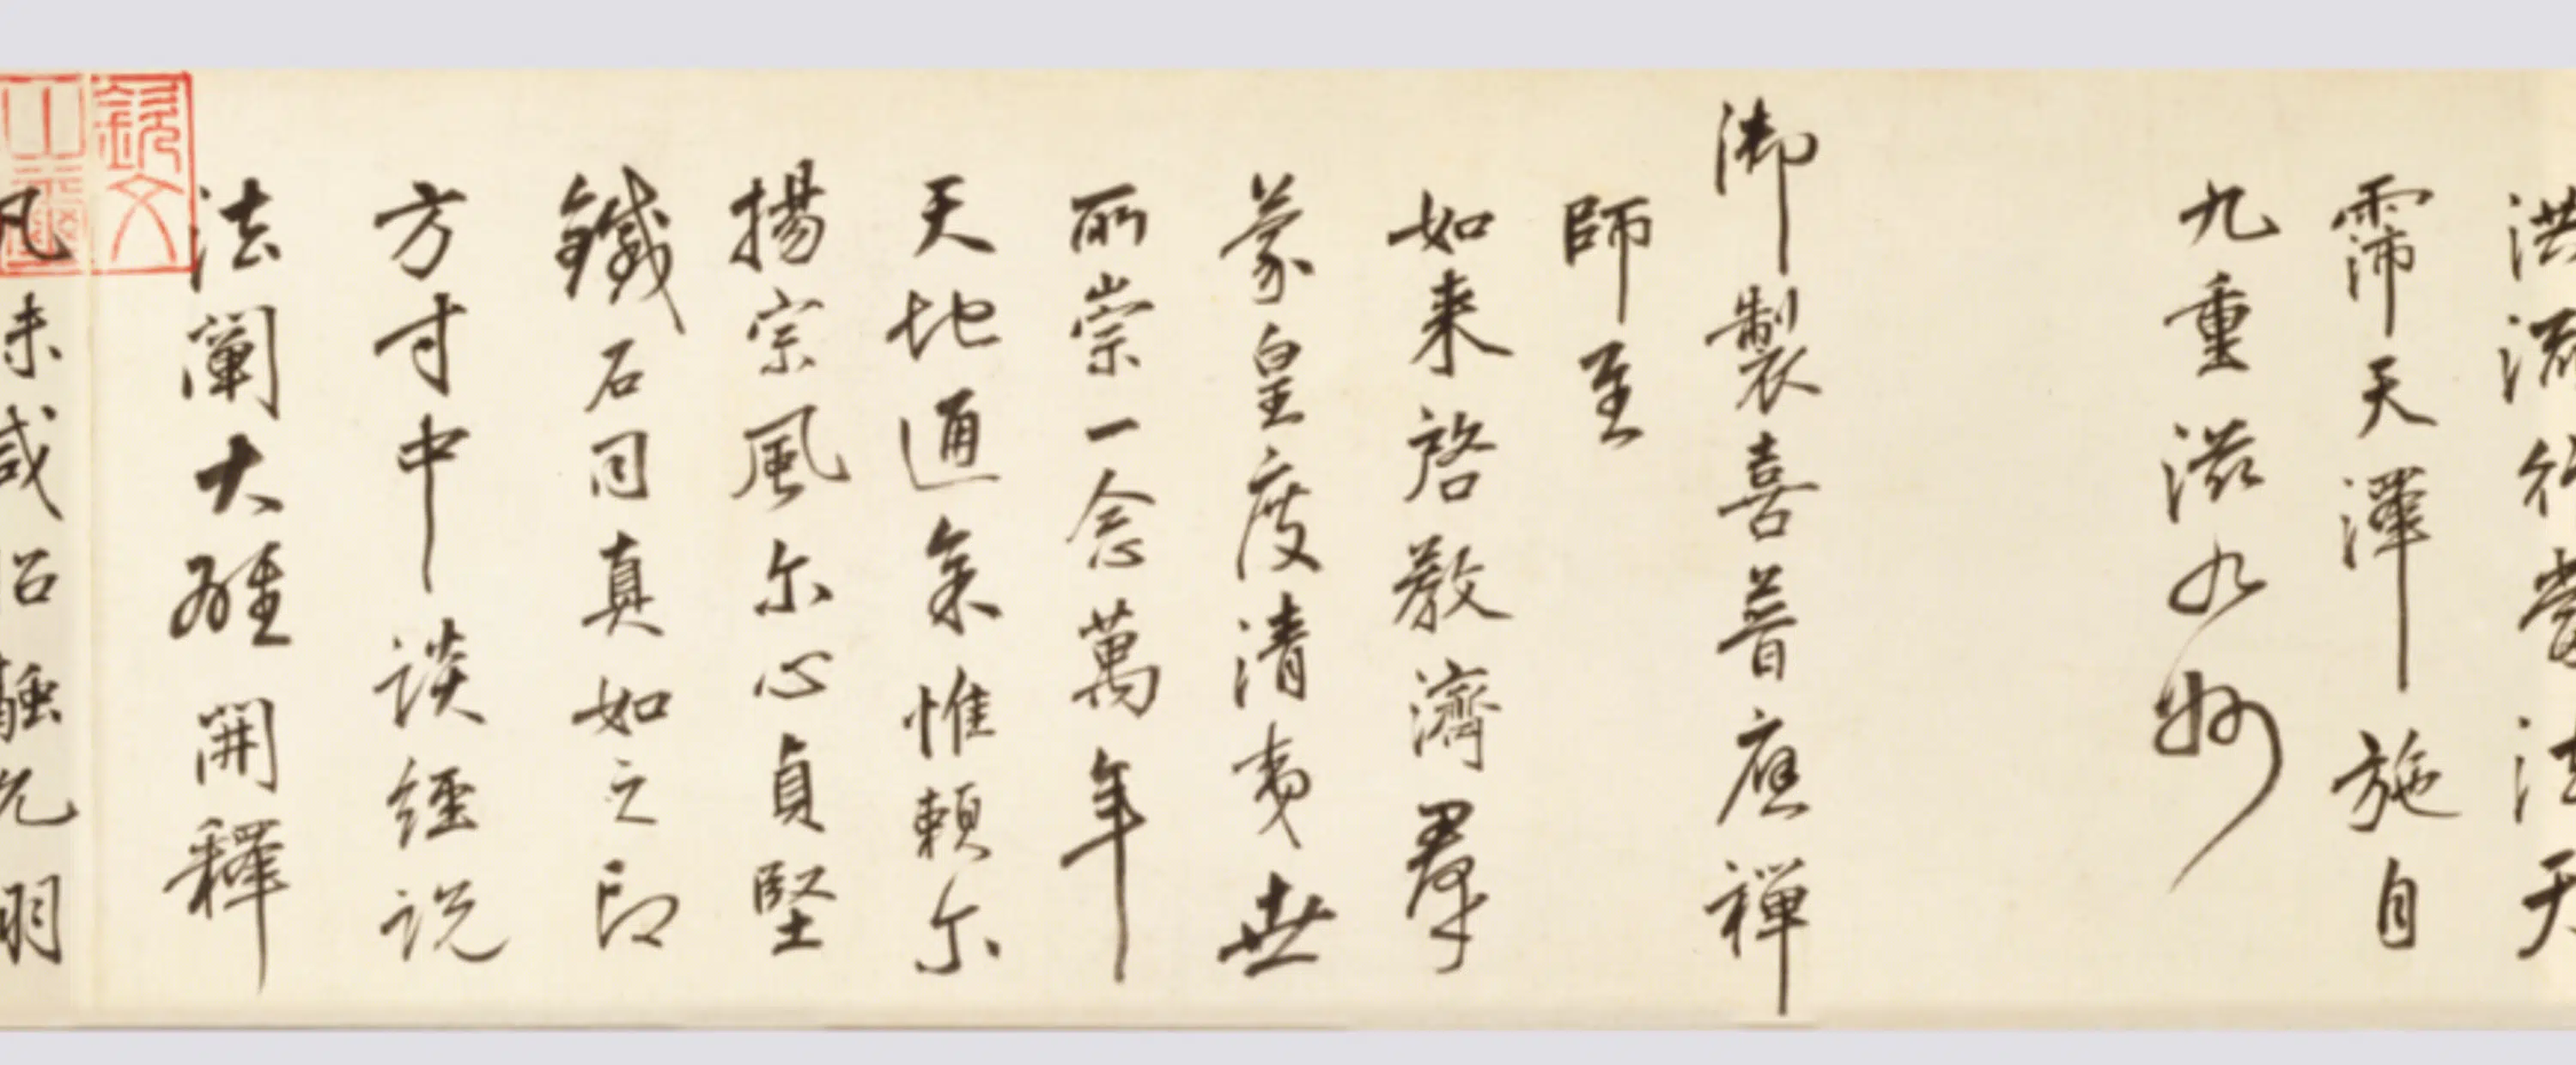 洪流
霈天澤施自
九重滋九州
御製喜普應禪
師至
如来啓教濟羣
蒙皇度清夷世
所崇一念萬年
天地通余惟頼尔
揚宗風尔心貞堅
鐵石同真如之印
方寸中談經説
法闡大雄開釋
凡未咸